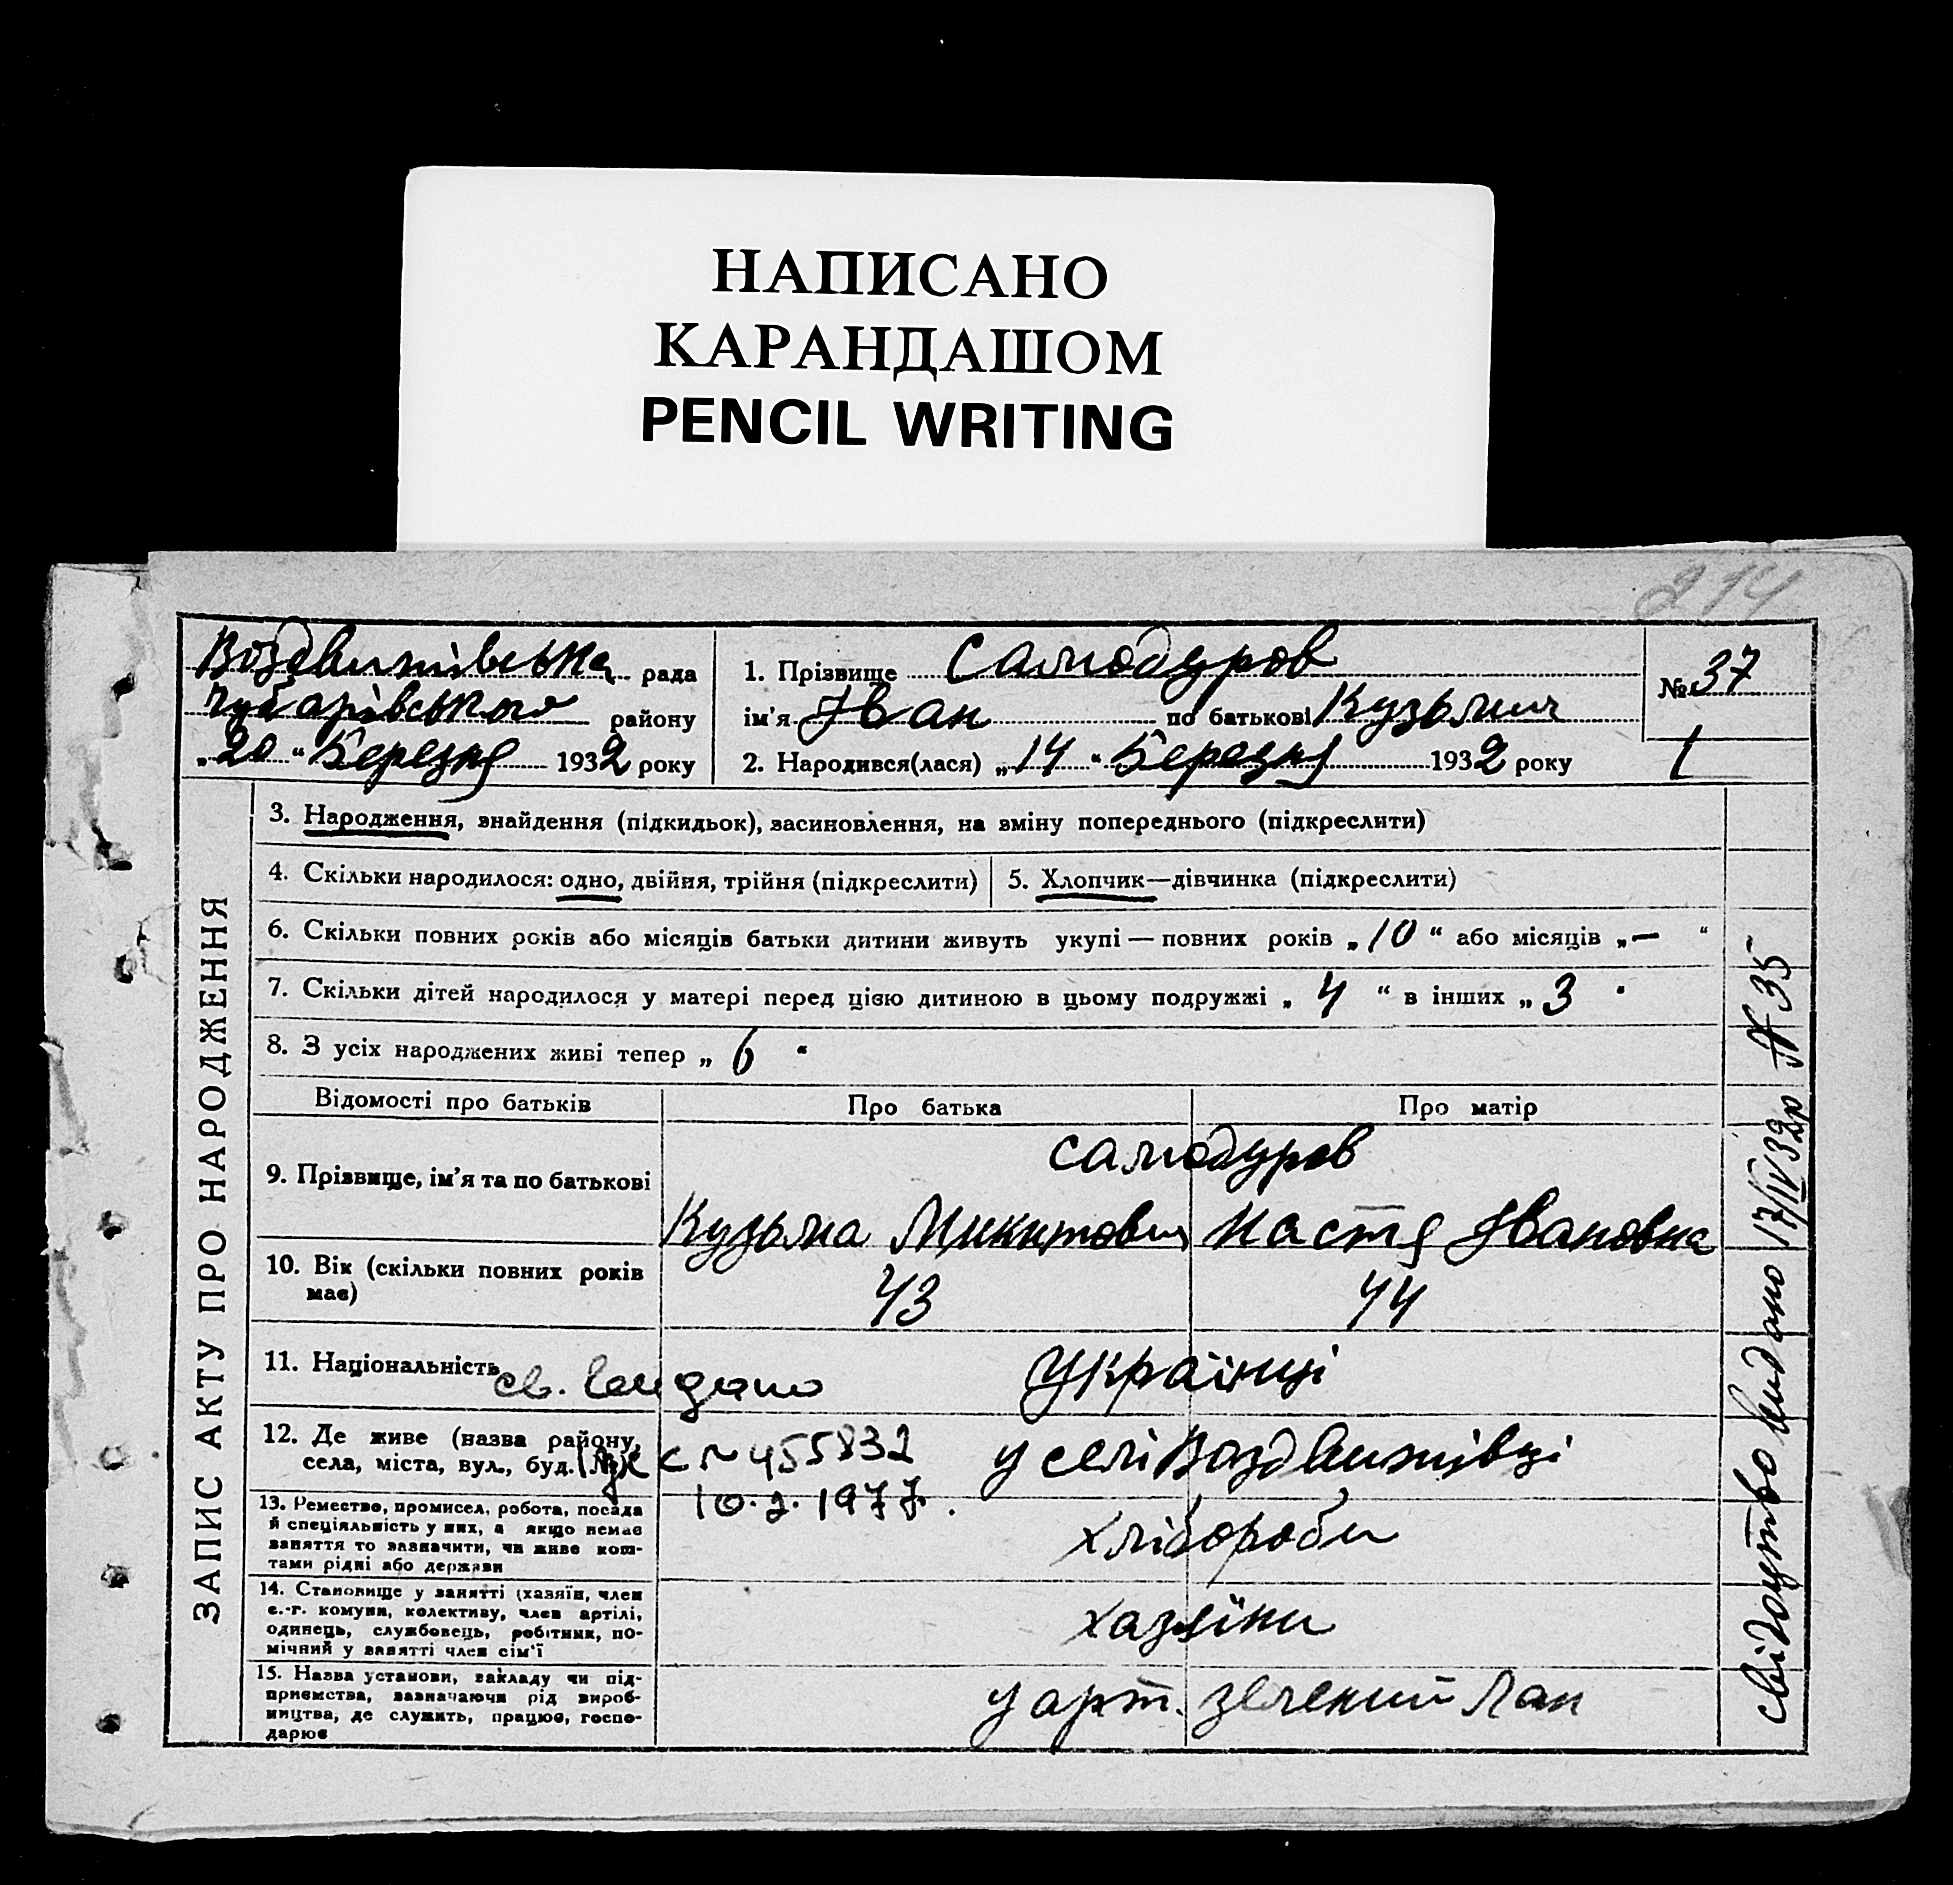 НАПИСАНО
КАРАНДАШОМ
PENCIL WRITING
214
Воздвижівська рада
Чубарівського району
„20“ Березня 1932 року
1. Прізвище Самодуров
ім'я Іван по батькові Кузьмич
2. Народився(лася) „14“ Березня 1932 року
№ 37
1
ЗАПИС АКТУ ПРО НАРОДЖЕННЯ
3. Народження, знайдення (підкидьок), засиновлення, на зміну попереднього (підкреслити)
4. Скільки народилося: одно, двійня, трійня (підкреслити)
5. Хлопчик—дівчинка (підкреслити)
6. Скільки повних років або місяців батьки дитини живуть укупі — повних років „10“ або місяців „—“
7. Скільки дітей народилося у матері перед цією дитиною в цьому подружжі „4“ в інших „3“
8. З усіх народжених живі тепер „6“
Відомості про батьків Про батька Про матір
9. Прізвище, ім'я та по батькові
Самодуров
Кузьма Микитович Настя Івановна
10. Вік (скільки повних років
має)
43 44
11. Національність
св. выдано
Українці
12. Де живе (назва району,
села, міста, вул., буд. №)
№ 455832
10.2.1977.
у селі Воздвижівці
13. Ремество, промисел, робота, посада
й спеціяльність у них, а якщо немає
заняття то зазначити, чи живе кош-
тами рідні або держави
хлібороби
14. Становище у занятті (хазяїн, член
с.-г. комуни, колективу, член артілі,
одинець, службовець, робітник, по-
мічний у занятті член сім'ї
хазяїни
15. Назва установи, закладу чи під-
приємства, зазначаючи рід вироб-
ництва, де служить, працює, госпо-
дарює
у арт. зелений Лан
свідоцтво видано 17/IV 32р № 35